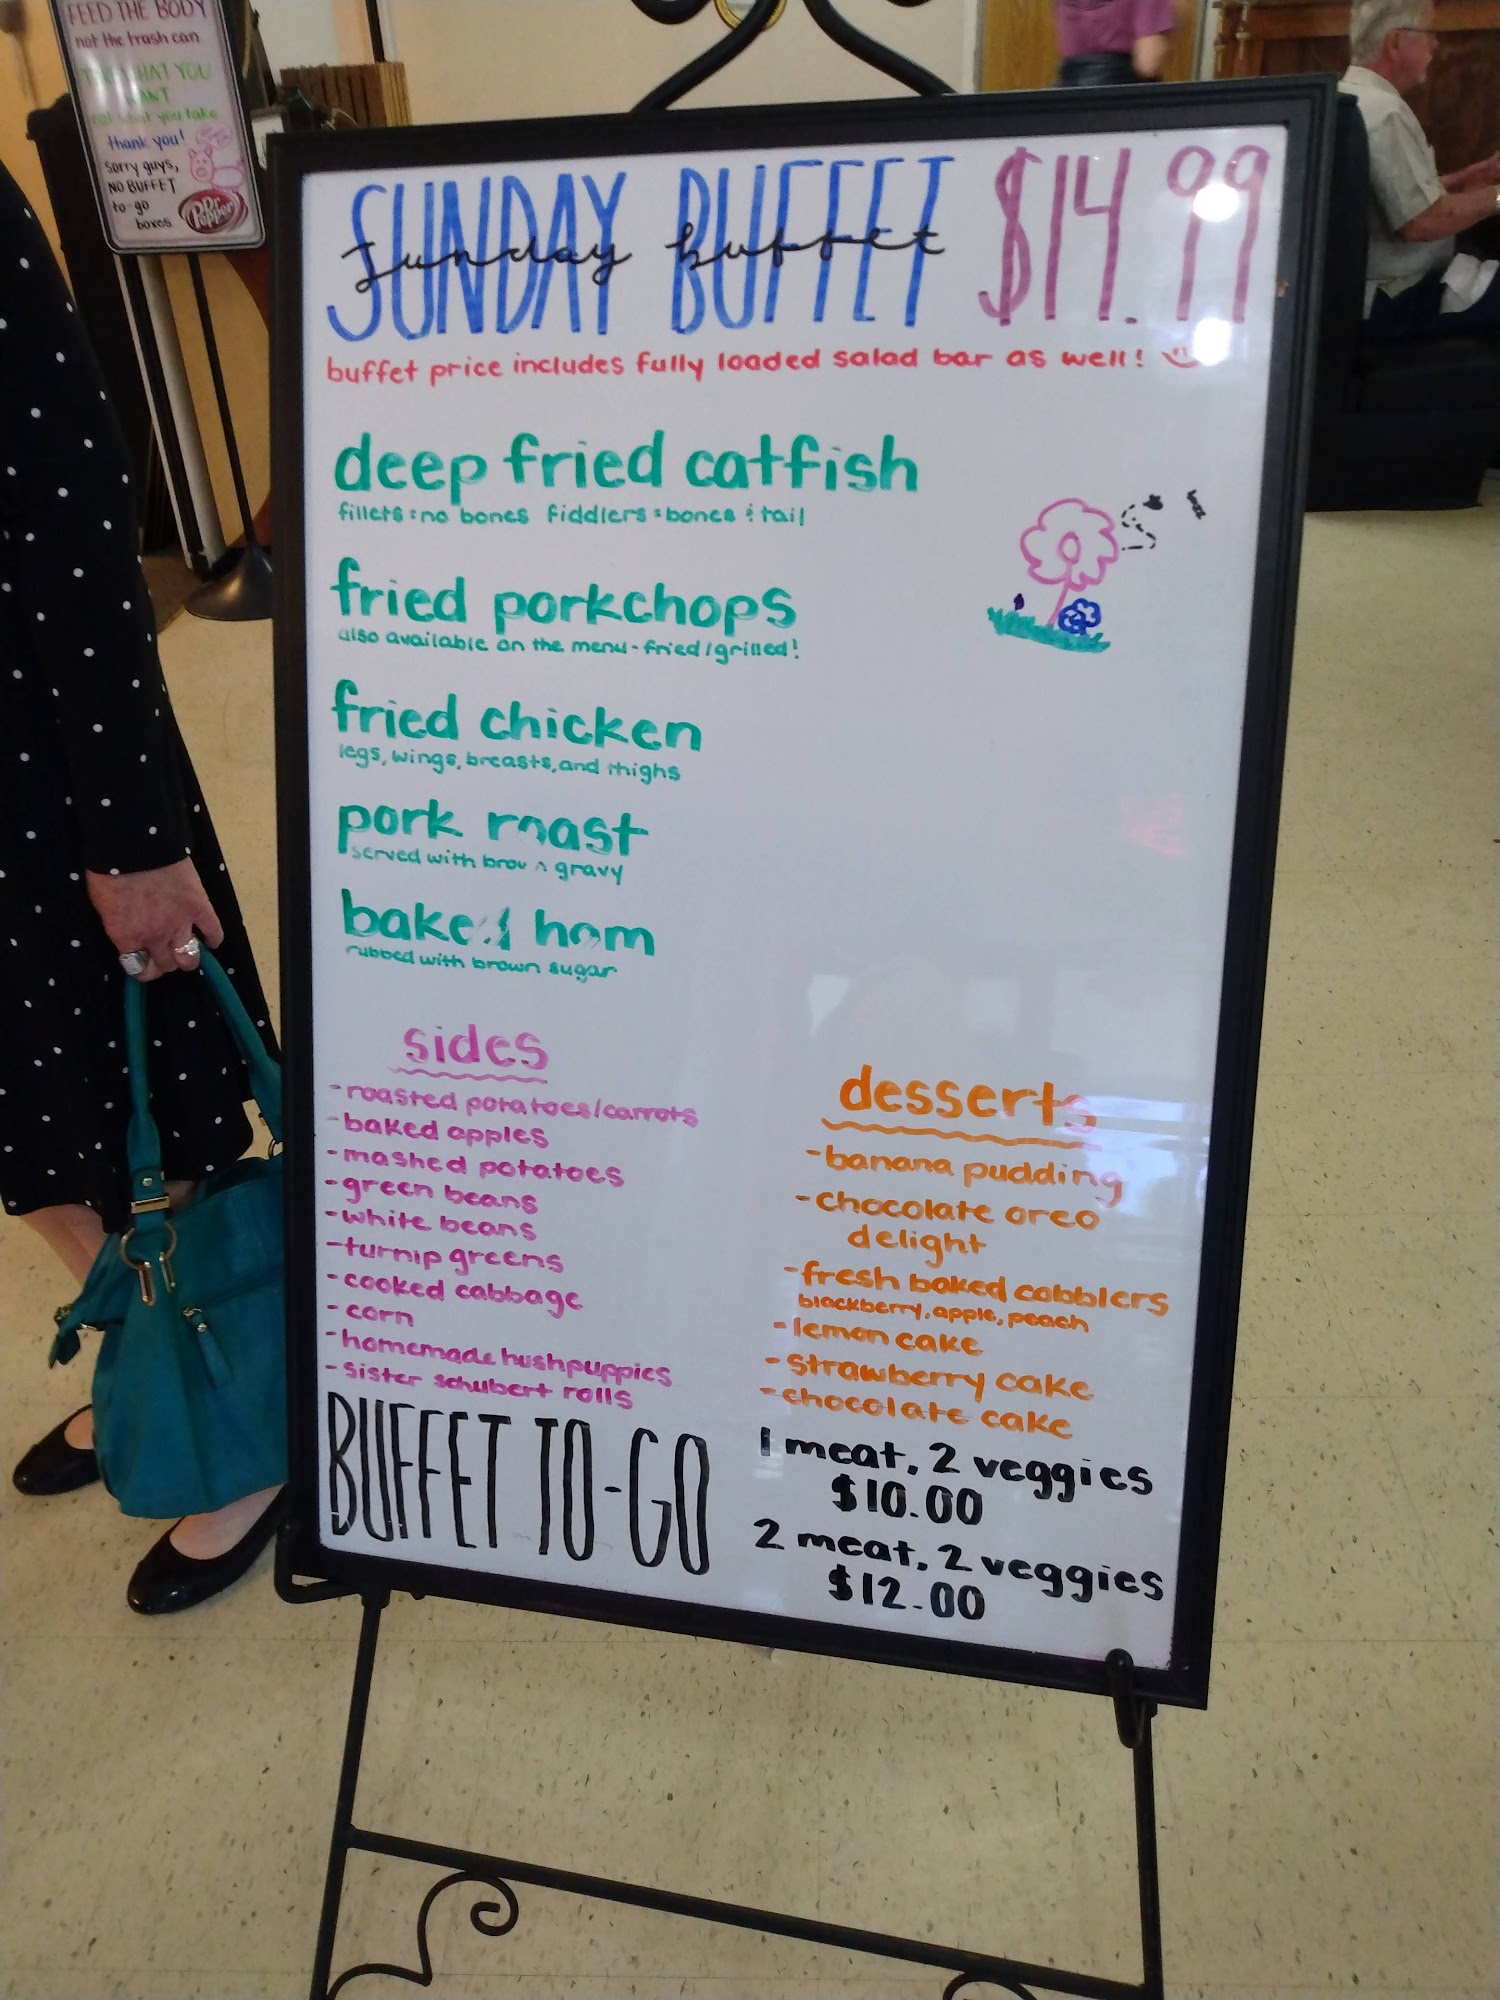 FEED THE BODY
not the trash can
WHAT YOU
WANT
eat what you take
thank you!
sorry guys,
NO BUFFET
to-go
boxes
Dr Pepper
SUNDAY BUFFET $14.99
Sunday buffet
buffet price includes fully loaded salad bar as well!
deep fried catfish
fillets = no bones fiddlers = bones & tail
fried porkchops
also available on the menu - fried/grilled!
fried chicken
legs, wings, breasts, and thighs
pork roast
served with brown gravy
baked ham
rubbed with brown sugar
sides
- roasted potatoes/carrots
- baked apples
- mashed potatoes
- green beans
- white beans
- turnip greens
- cooked cabbage
- corn
- homemade hushpuppies
- sister schubert rolls
desserts
- banana pudding
- chocolate oreo
delight
- fresh baked cobblers
blackberry, apple, peach
- lemon cake
- strawberry cake
- chocolate cake
BUFFET TO-GO
1 meat, 2 veggies
$10.00
2 meat, 2 veggies
$12.00